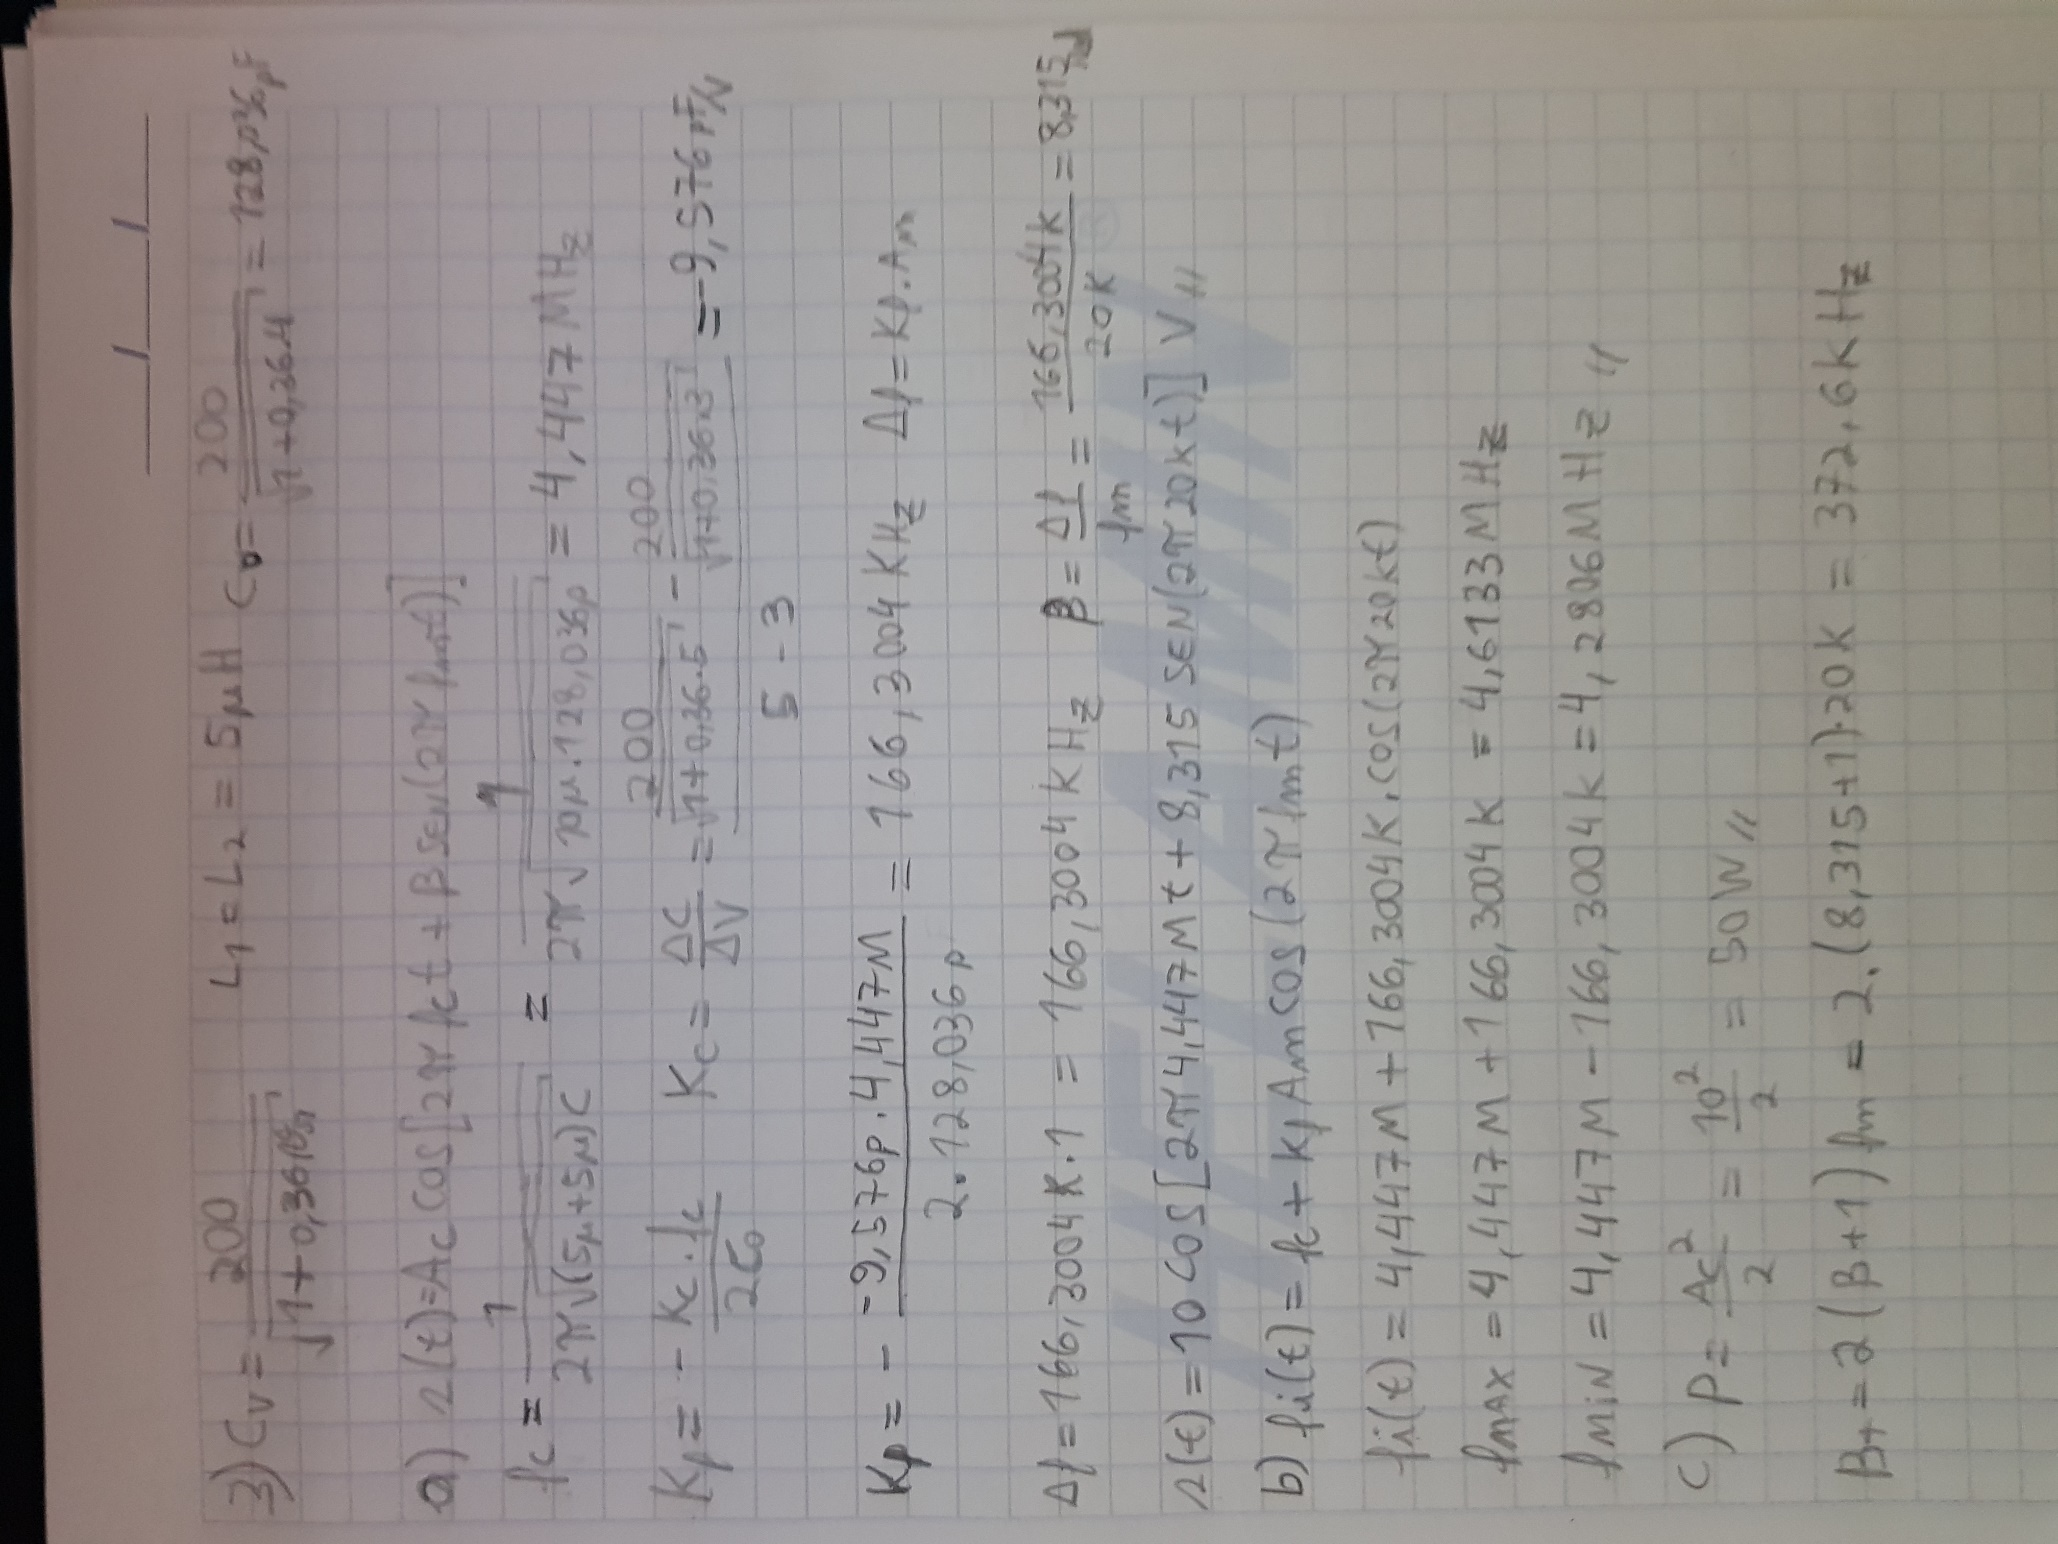 3) Cv = 200 / √(1+0,36|Vv|) L1 = L2 = 5μH C0 = 200 / √(1+0,36.4) = 128,036pF
a) s(t) = Ac cos[2π fct + β sen(2π fmt)]
fc = 1 / 2π√((5μ+5μ)C) = 1 / 2π√(10μ.128,036p) = 4,447 MHz
Kf = - Kc.fc / 2C0 Kc = ΔC / ΔV = (200 / √(1+0,36.5) - 200 / √(1+0,36.3)) / (5 - 3) = -9,576 pF/V
Kf = - -9,576p.4,447M / 2.128,036p = 166,3004 KHz Δf = Kf.Am
Δf = 166,3004K.1 = 166,3004 kHz β = Δf / fm = 166,3004k / 20K = 8,315 rd
s(t) = 10 cos[2π 4,447Mt + 8,315 SEN(2π 20kt)] V //
b) fi(t) = fc + Kf Am cos(2π fmt)
fi(t) = 4,447M + 166,3004K.cos(2π 20kt)
fMAX = 4,447M + 166,3004k = 4,6133MHz
fMiN = 4,447M - 166,3004k = 4,2806MHz //
c) P = Ac² / 2 = 10² / 2 = 50W //
BT = 2(β+1) fm = 2.(8,315+1).20k = 372,6kHz